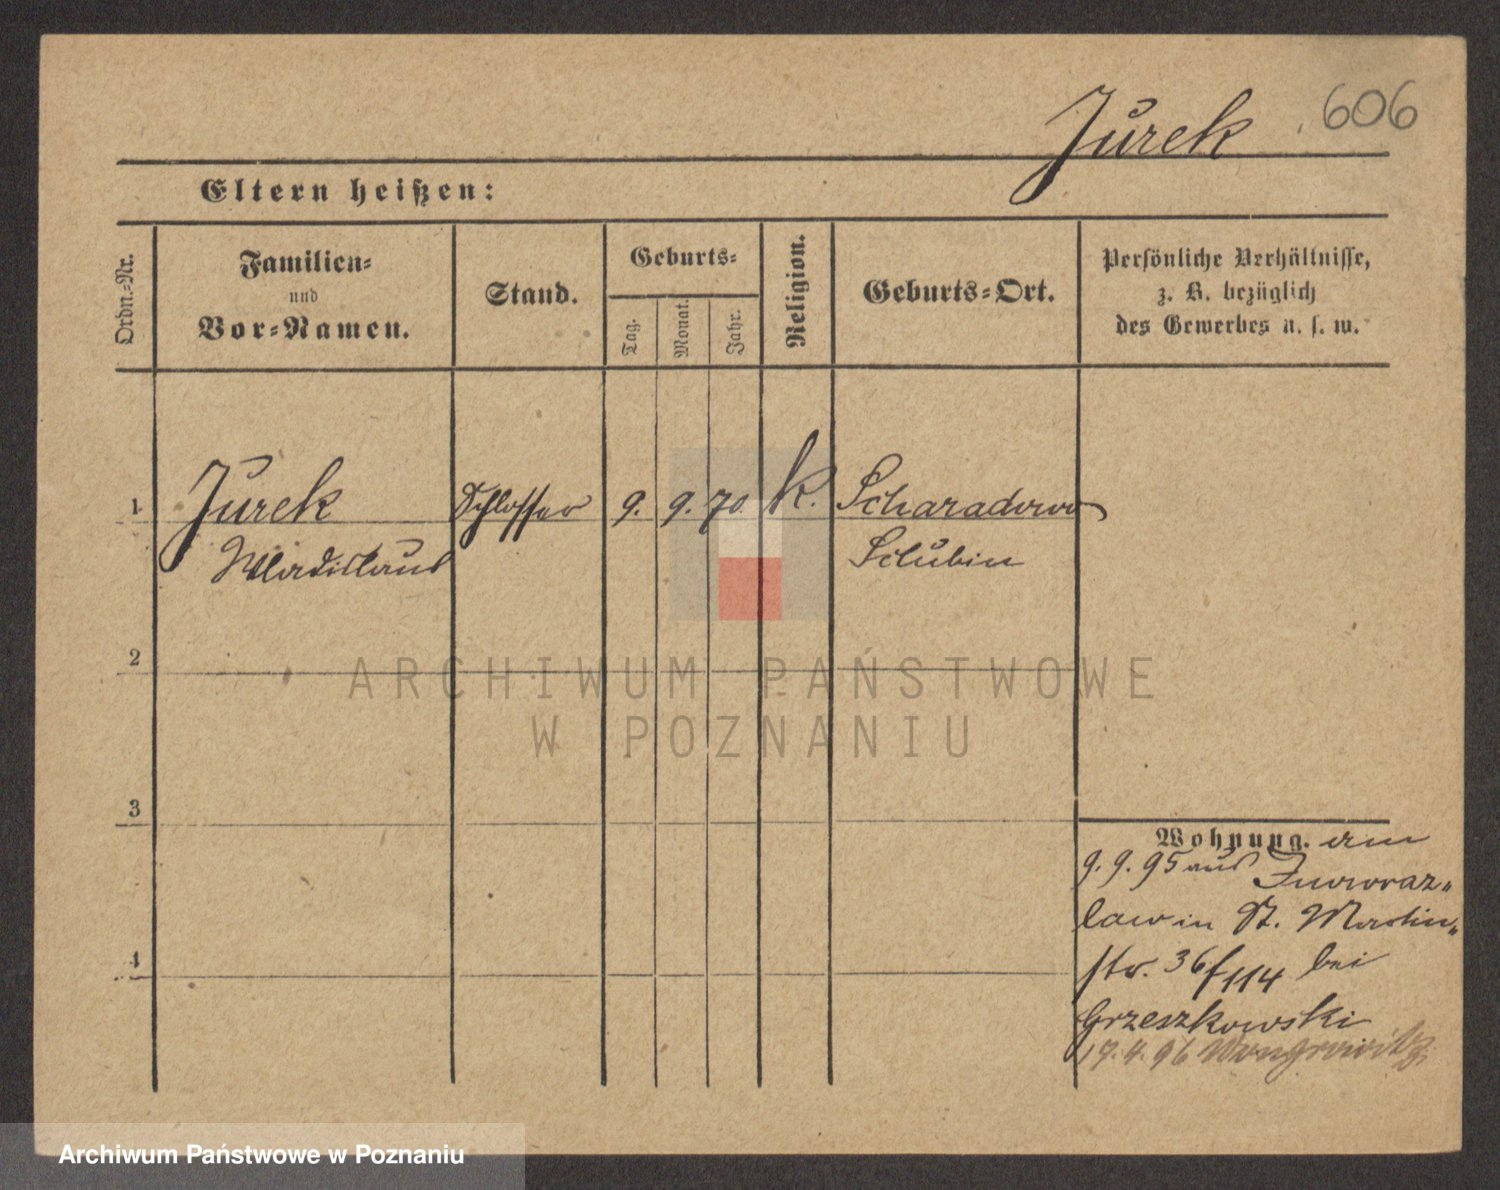 Jurek 606
Eltern heißen:
Ordn.-Nr.
Familien-
und
Vor-Namen.
Stand.
Geburts-
Tag.
Monat.
Jahr.
Religion.
Geburts-Ort.
Persönliche Verhältnisse,
z. B. bezüglich
des Gewerbes u. s. w.
1 Jurek Schlosser 9. 9. 70. k. Scharadowo
Wladislaus Schubin
2
3
4
Wohnung. am
9. 9. 95 aus Inowraz-
law in St. Martin-
str. 36 f 114 bei
Grzeszkowski
17. 4. 96 Wongrowitz
ARCHIWUM PAŃSTWOWE
W POZNANIU
Archiwum Państwowe w Poznaniu